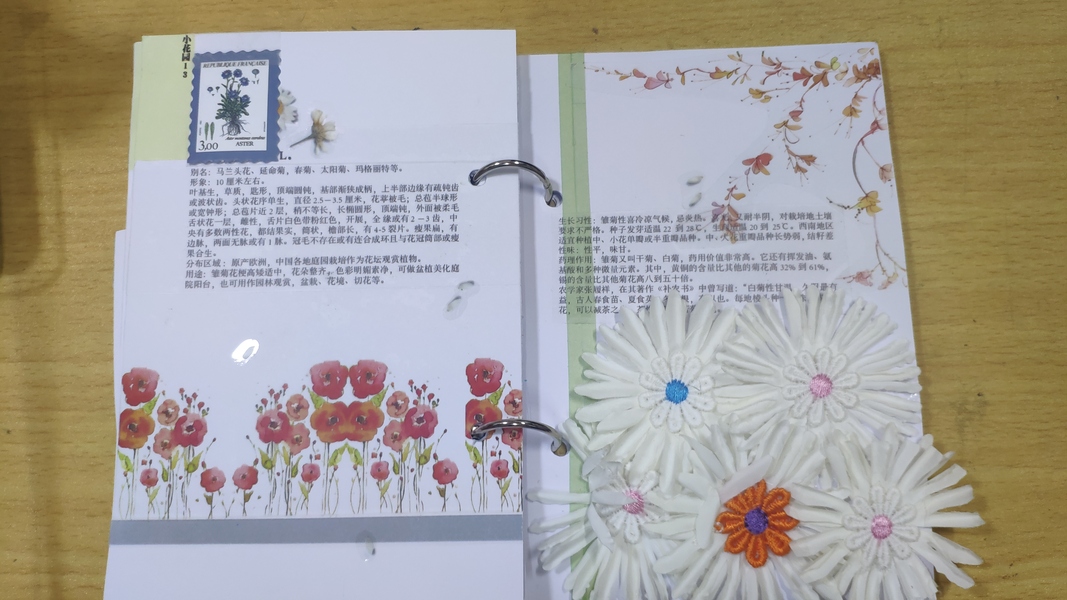 小花园13
REPUBLIQUE FRANÇAISE
3,00
ASTER
L.
别名：马兰头花、延命菊，春菊、太阳菊、玛格丽特等。
形象：10 厘米左右。
叶基生，草质，匙形，顶端圆钝，基部渐狭成柄，上半部边缘有疏钝齿
或波状齿。头状花序单生，直径 2.5－3.5 厘米，花葶被毛；总苞半球形
或宽钟形；总苞片近 2 层，稍不等长，长椭圆形，顶端钝，外面被柔毛
舌状花一层，雌性，舌片白色带粉红色，开展，全缘或有 2－3 齿，中
央有多数两性花，都结果实，筒状，檐部长，有 4-5 裂片。瘦果扁，有
边脉，两面无脉或有 1 脉。冠毛不存在或有连合成环且与花冠筒部或瘦
果合生。
分布区域：原产欧洲，中国各地庭园栽培作为花坛观赏植物。
用途：雏菊花梗高矮适中，花朵整齐，色彩明媚素净，可做盆植美化庭
院阳台，也可用作园林观赏，盆栽、花境、切花等。
生长习性：雏菊性喜冷凉气候，忌炎热。 又耐半阴，对栽培地土壤
要求不严格。种子发芽适温 22 到 28℃，生 适温 20 到 25℃。西南地区
适宜种植中、小花单瓣或半重瓣品种。中、大 重瓣品种长势弱，结籽差
性味：性平，味甘。
药理作用：雏菊又叫干菊、白菊，药用价值非常高。它还有挥发油、氨
基酸和多种微量元素。其中，黄铜的含量比其他的菊花高 32% 到 61%，
锡的含量比其他菊花高八到五十倍。
农学家张履祥，在其著作《补农书》中曾写道：“白菊性甘
益，古人春食苗、夏食
花，可以减茶之